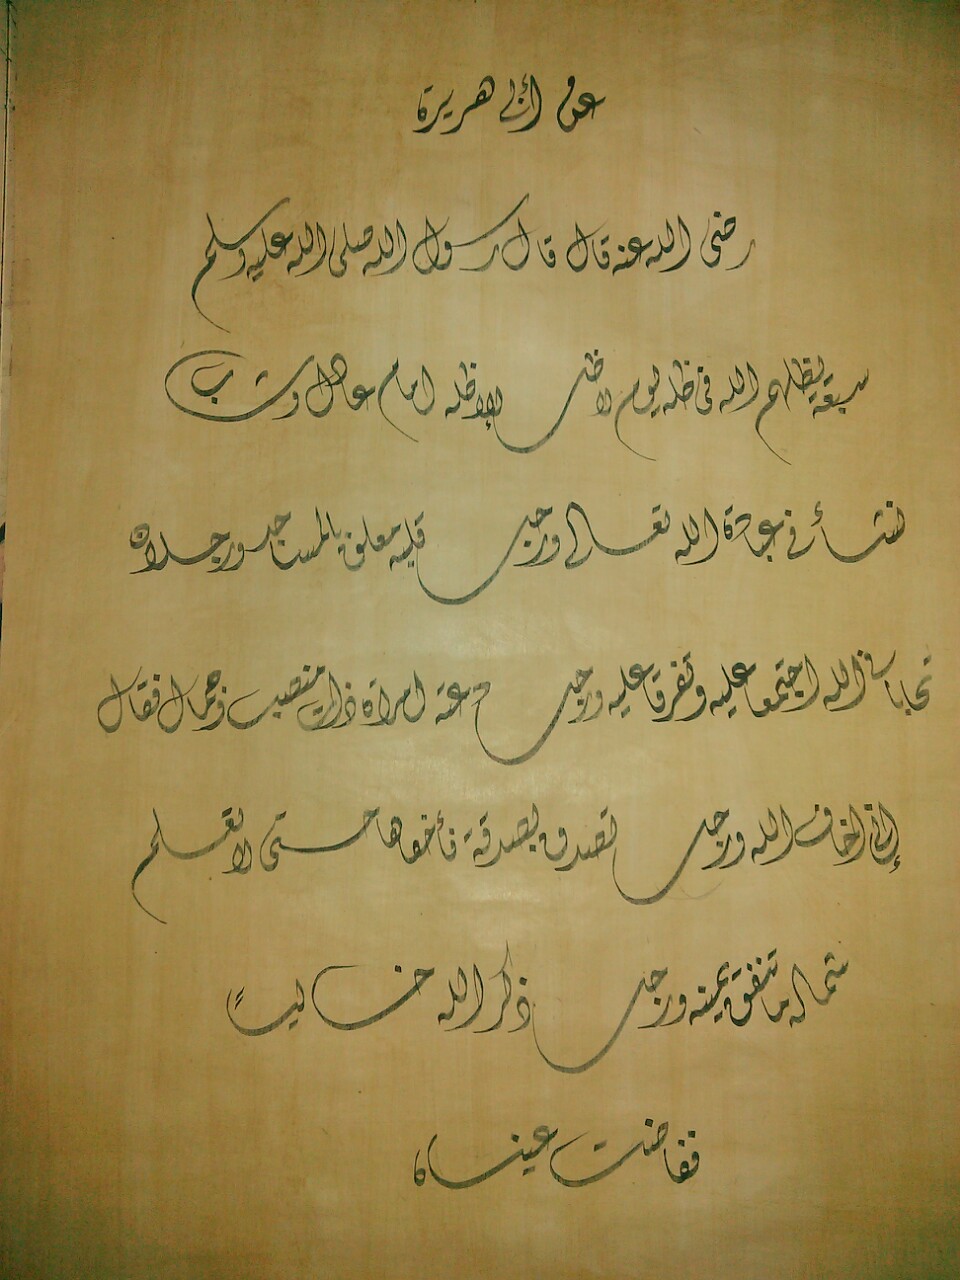 عن أبي هريرة
رضى الله عنه قال قال رسول الله صلى الله عليه وسلم
سبعة يظلهم الله فى ظله يوم لا ظل إلا ظله امام عادل وشاب
نشأ في عبادة الله تعالى ورجل قلبه معلق بالمساجد ورجلان
تحابا في الله اجتمعا عليه وتفرقا عليه ورجل دعته امرأة ذات منصب وجمال فقال
إنى اخاف الله ورجل تصدق بصدقة فأخفاها حتى لا تعلم
شماله ما تنفق يمينه ورجل ذكر الله خاليًا
ففاضت عيناه